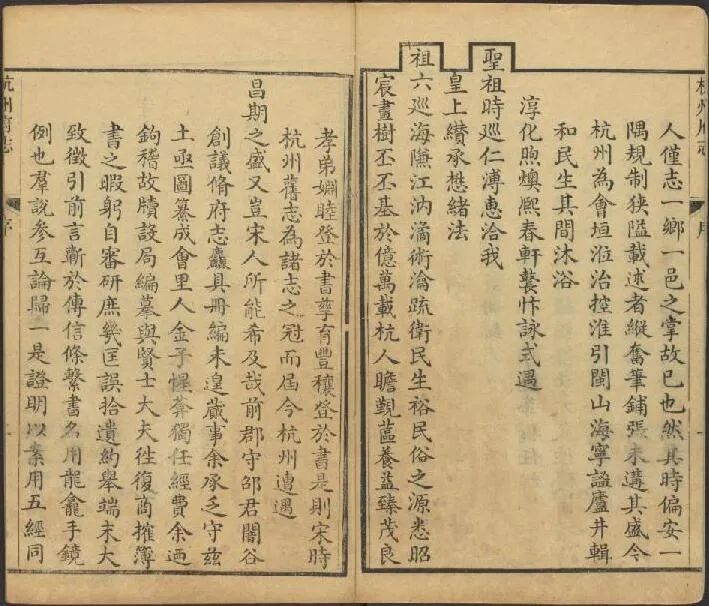 杭州府志
序
人僅志一鄉一邑之掌故已也然其時偏安一
隅規制狹隘載述者縱奮筆鋪張未遘其盛今
杭州為會垣涖治控淮引閩山海寧謐廬井輯
和民生其間沐浴
淳化煦燠熙春軒鼚忭詠式遇
聖祖時巡仁溥惠洽我
皇上纘承懋緒法
祖六巡海隒江汭潏術瀹疏衛民生裕民俗之源悉昭
宸畫樹丕丕基於億萬載杭人瞻覲蕰養益臻茂良
孝弟婣睦登於書孳育豐穰登於書是則宋時
杭州舊志為諸志之冠而屆今杭州遭遇
昌期之盛又豈宋人所能希及哉前郡守邵君闇谷
創議脩府志麤具冊編未遑蕆事余承乏守茲
土亟圖纂成會里人金子惺葊獨任經費余迺
鉤稽故牘設局編摹與賢士大夫往復商搉簿
書之暇躬自審研庶幾匡誤拾遺約舉端末大
致徵引前言蘄於傳信條繫書名用龍龕手鏡
例也羣說參互論歸一是證明以案用五經同
杭州府志
序